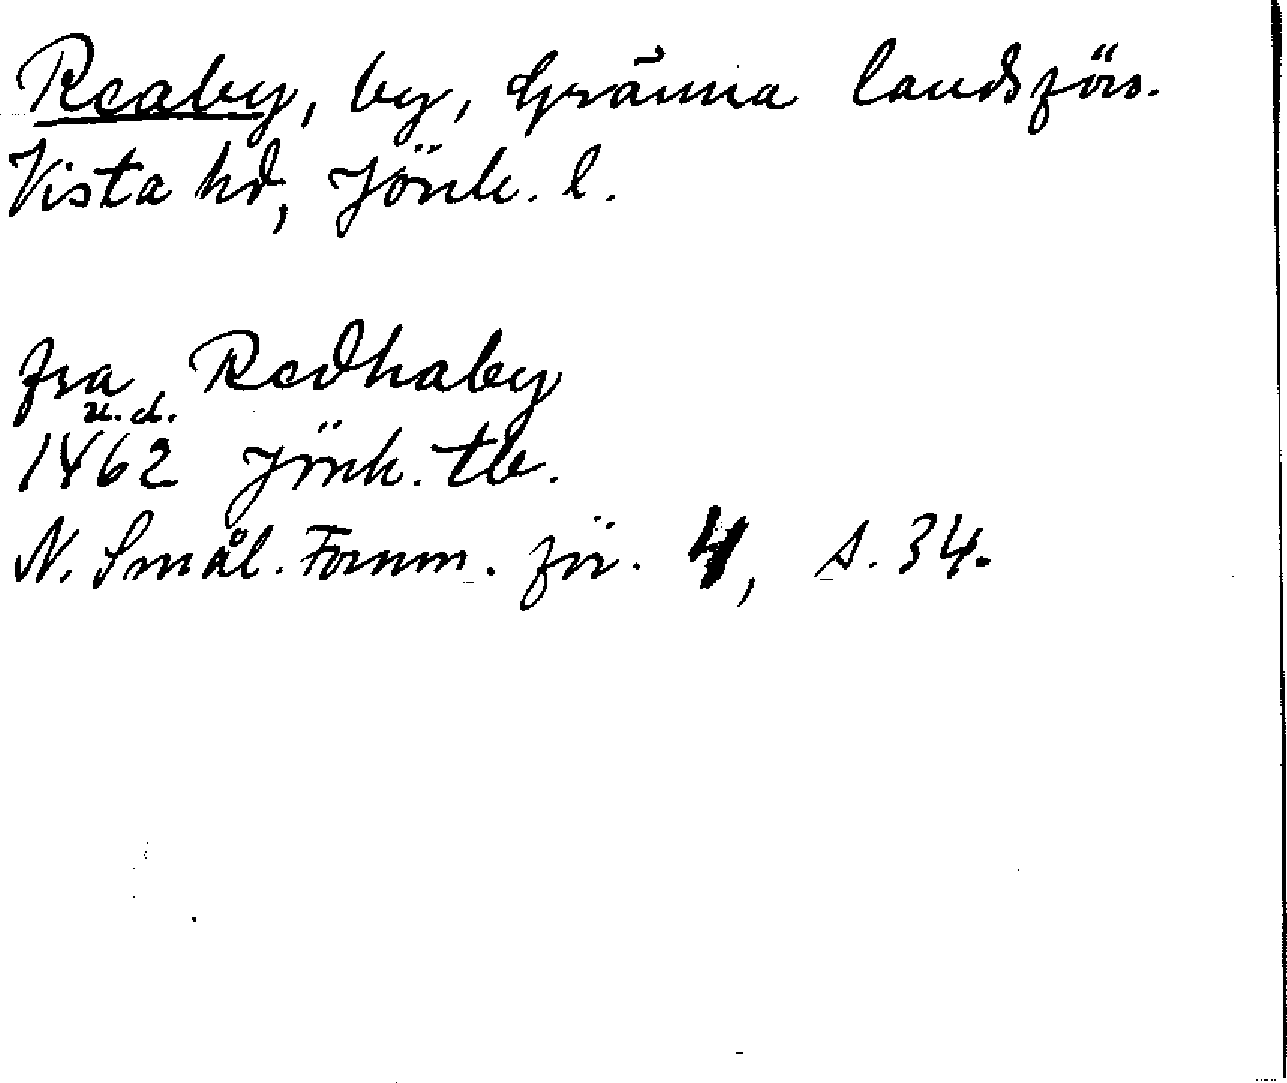 Reaby, by, Gränna landsförs.
Vista hd, Jönk. l.
fra Redhaby
u.d.
1462 Jönk. tb.
N. Smål. Fornm. för. 4, s. 34.